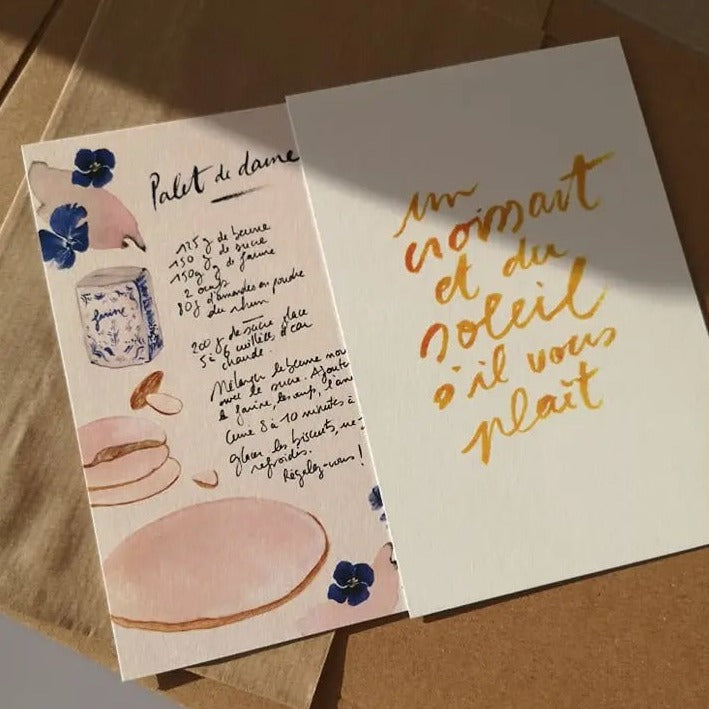 Palet de dame
125 g de beurre
150 g de sucre
150 g de farine
2 oeufs
80g d'amandes en poudre
du rhum
200 g de sucre glace
5 à 6 cuillères d'eau
chaude.
Mélanger le beurre mou
avec le sucre. Ajoute
la farine, les oeufs, l'am
Cuire 8 à 10 minutes à
glacer les biscuits, une
refroidis.
Régalez-vous !
farine
un
croissant
et du
soleil
s'il vous
plaît